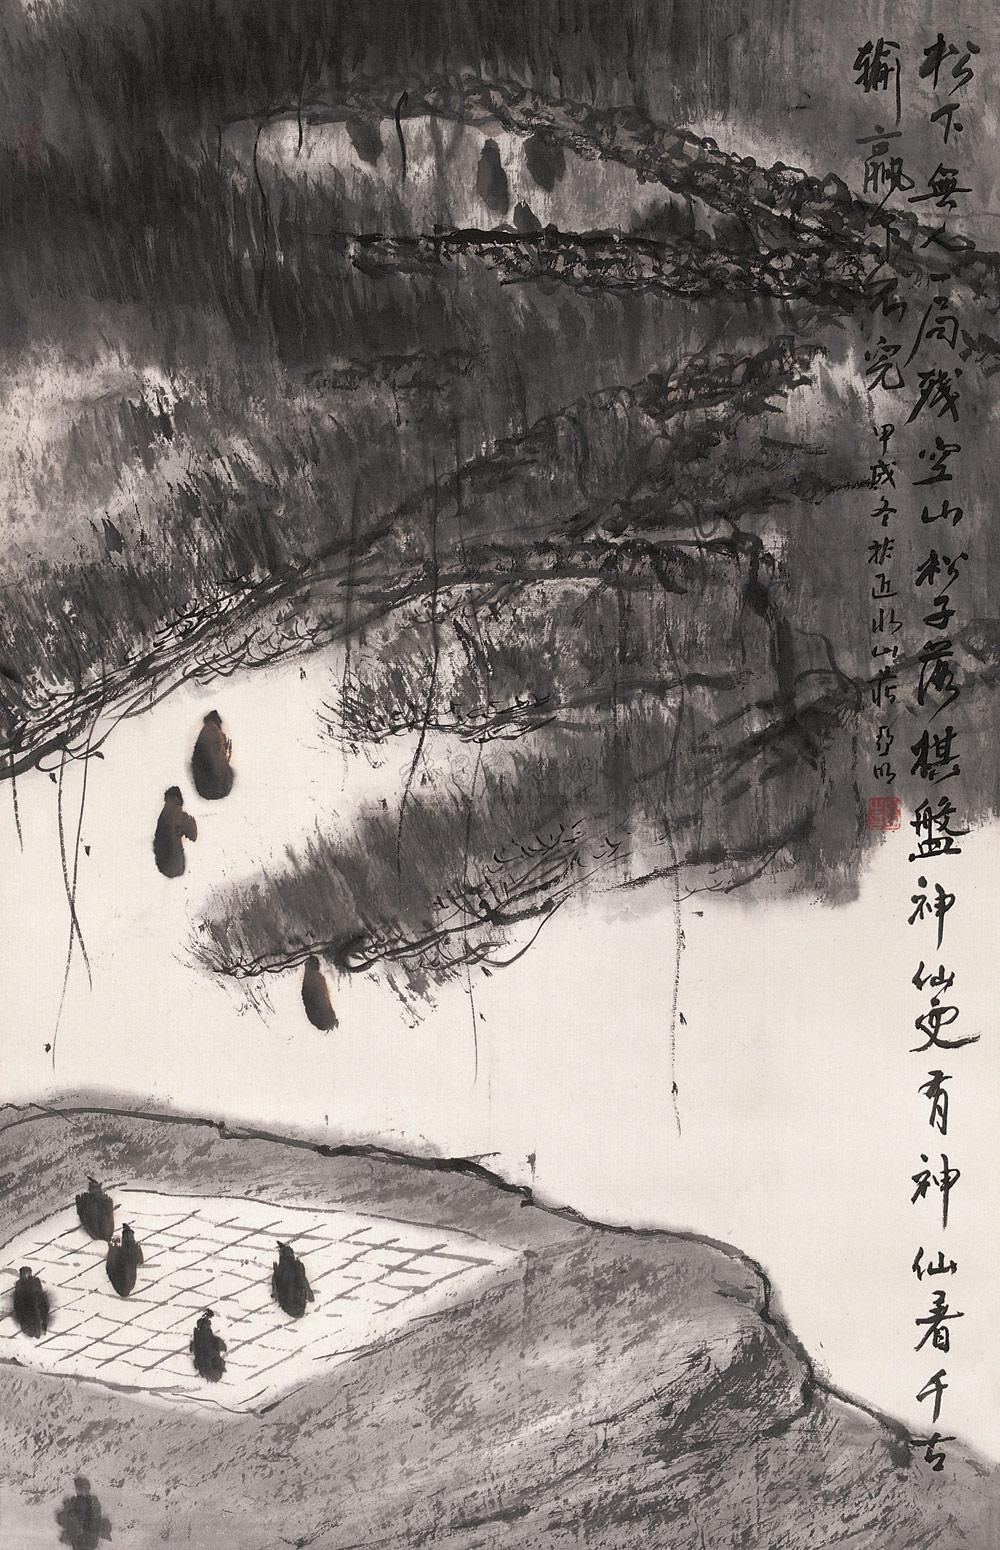 松下無人一局殘空山松子落棋盤神仙更有神仙着千古
輸贏下不完
甲戌冬於近水山莊亞明